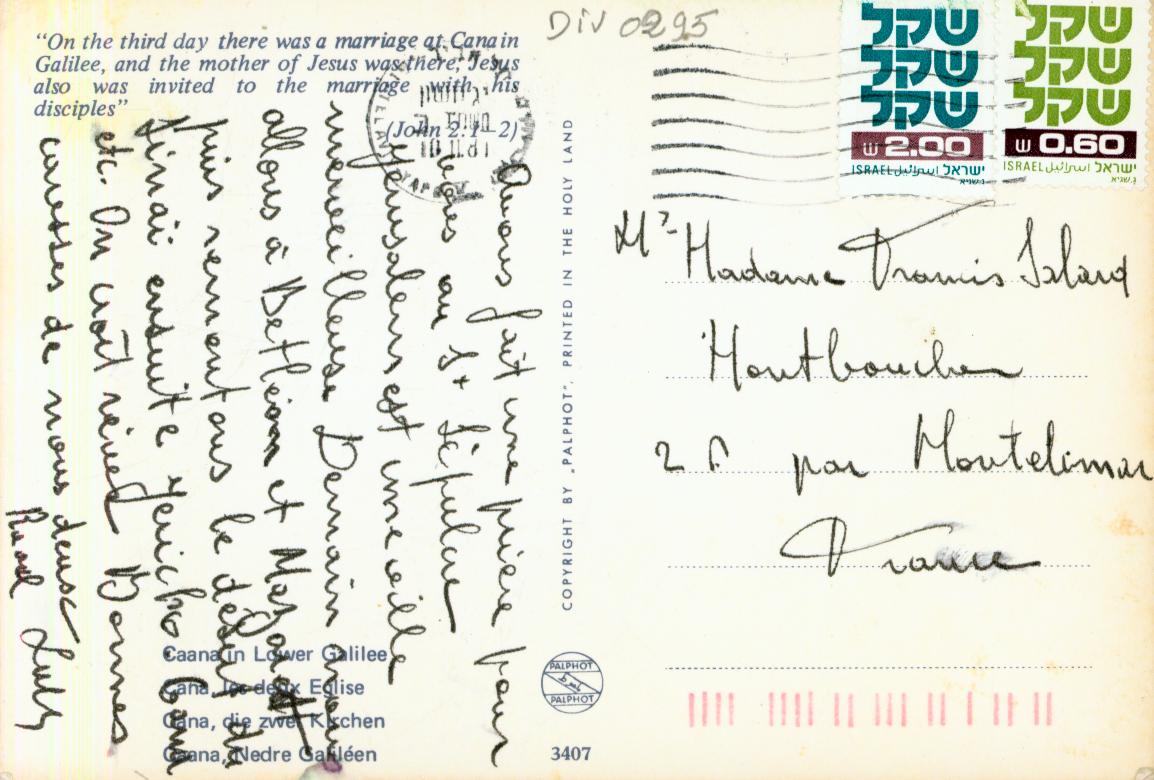 DIV 0295
"On the third day there was a marriage at Cana in
Galilee, and the mother of Jesus was there; Jesus
also was invited to the marriage with his
disciples"
(John 2: 1-2)
Avons fait une prière pour
vous au St Sépulcre
Jérusalem est une ville
merveilleuse Demain nous
allons à Bethléem et
puis remontons le désert du
Sinaï ensuite Jéricho Cana
etc. On croit rêver Bonnes
caresses de nous deux
Caana in Lower Galilee
Cana, les deux Eglise
Cana, die zwei Kirchen
Caana, Nedre Galiléen
COPYRIGHT BY „PALPHOT", PRINTED IN THE HOLY LAND
PALPHOT
PALPHOT
3407
שקל
שקל
שקל
ש 2.00
ישראל اسرائيل ISRAEL
א. שגיא
שקל
שקל
שקל
ש 0.60
ישראל اسرائيل ISRAEL
א. שגיא
Mr Madame Francis Islard
Montboucher
26 par Montelimar
France